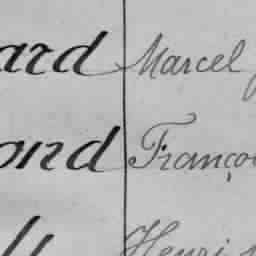 ard Marcel
ond Françoi
Henri